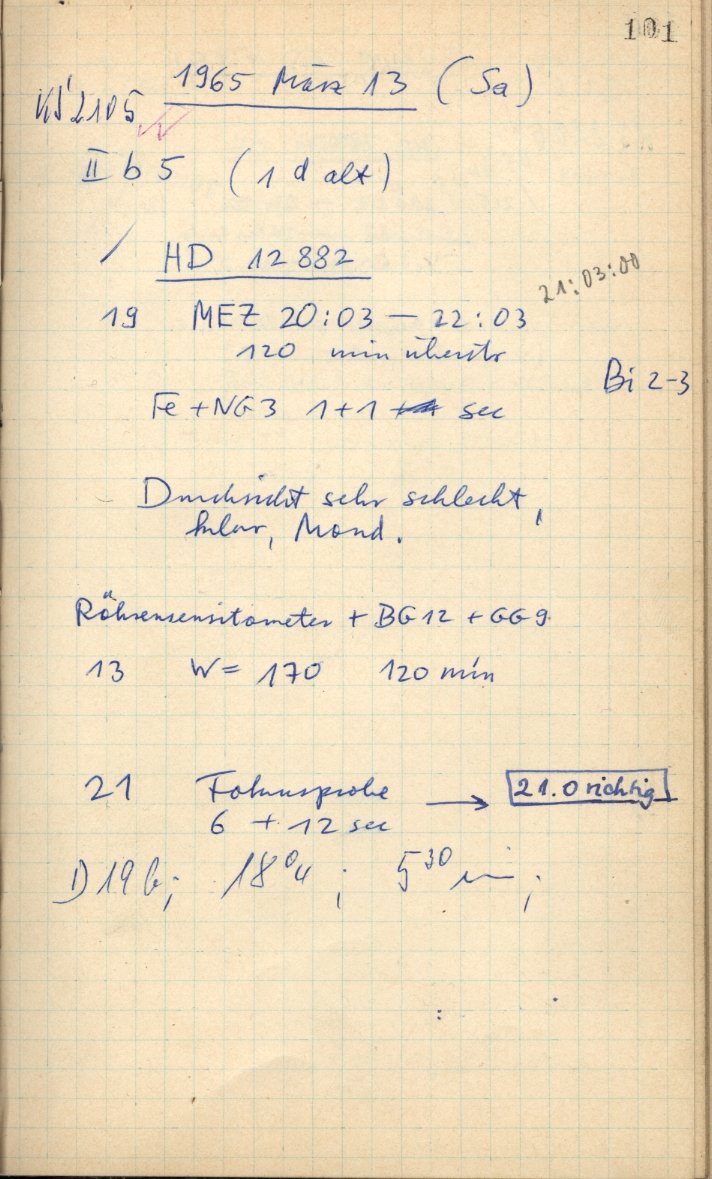 101
1965 März 13 (Sa)
KS 2105
II b 5 (1 d alt)
HD 12882
21:03:00
19 MEZ 20:03 — 22:03
120 min
Bi 2-3
Fe + NG3 1+1 sec
Durchsicht sehr schlecht,
klar, Mond.
Röhrensensitometer + BG12 + GG9
13 W = 170 120 min
21 Fokusprobe → 21.0 richtig
6 + 12 sec
D19b; 18°4; 5 30